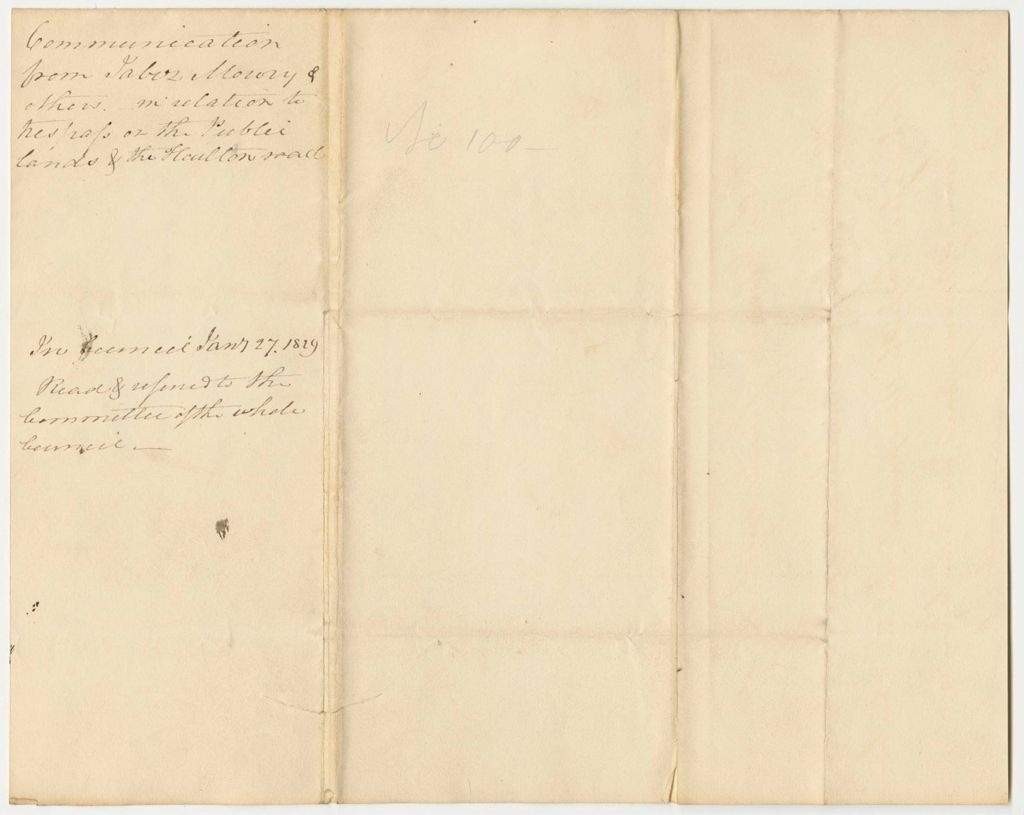 Communication
from Jabez Mowry &
others. in relation to
trespass on the Public
lands & the Houlton road
No 100-
In Council Jany 27. 1829
Read & referred to the
Committee of the whole
Council. —